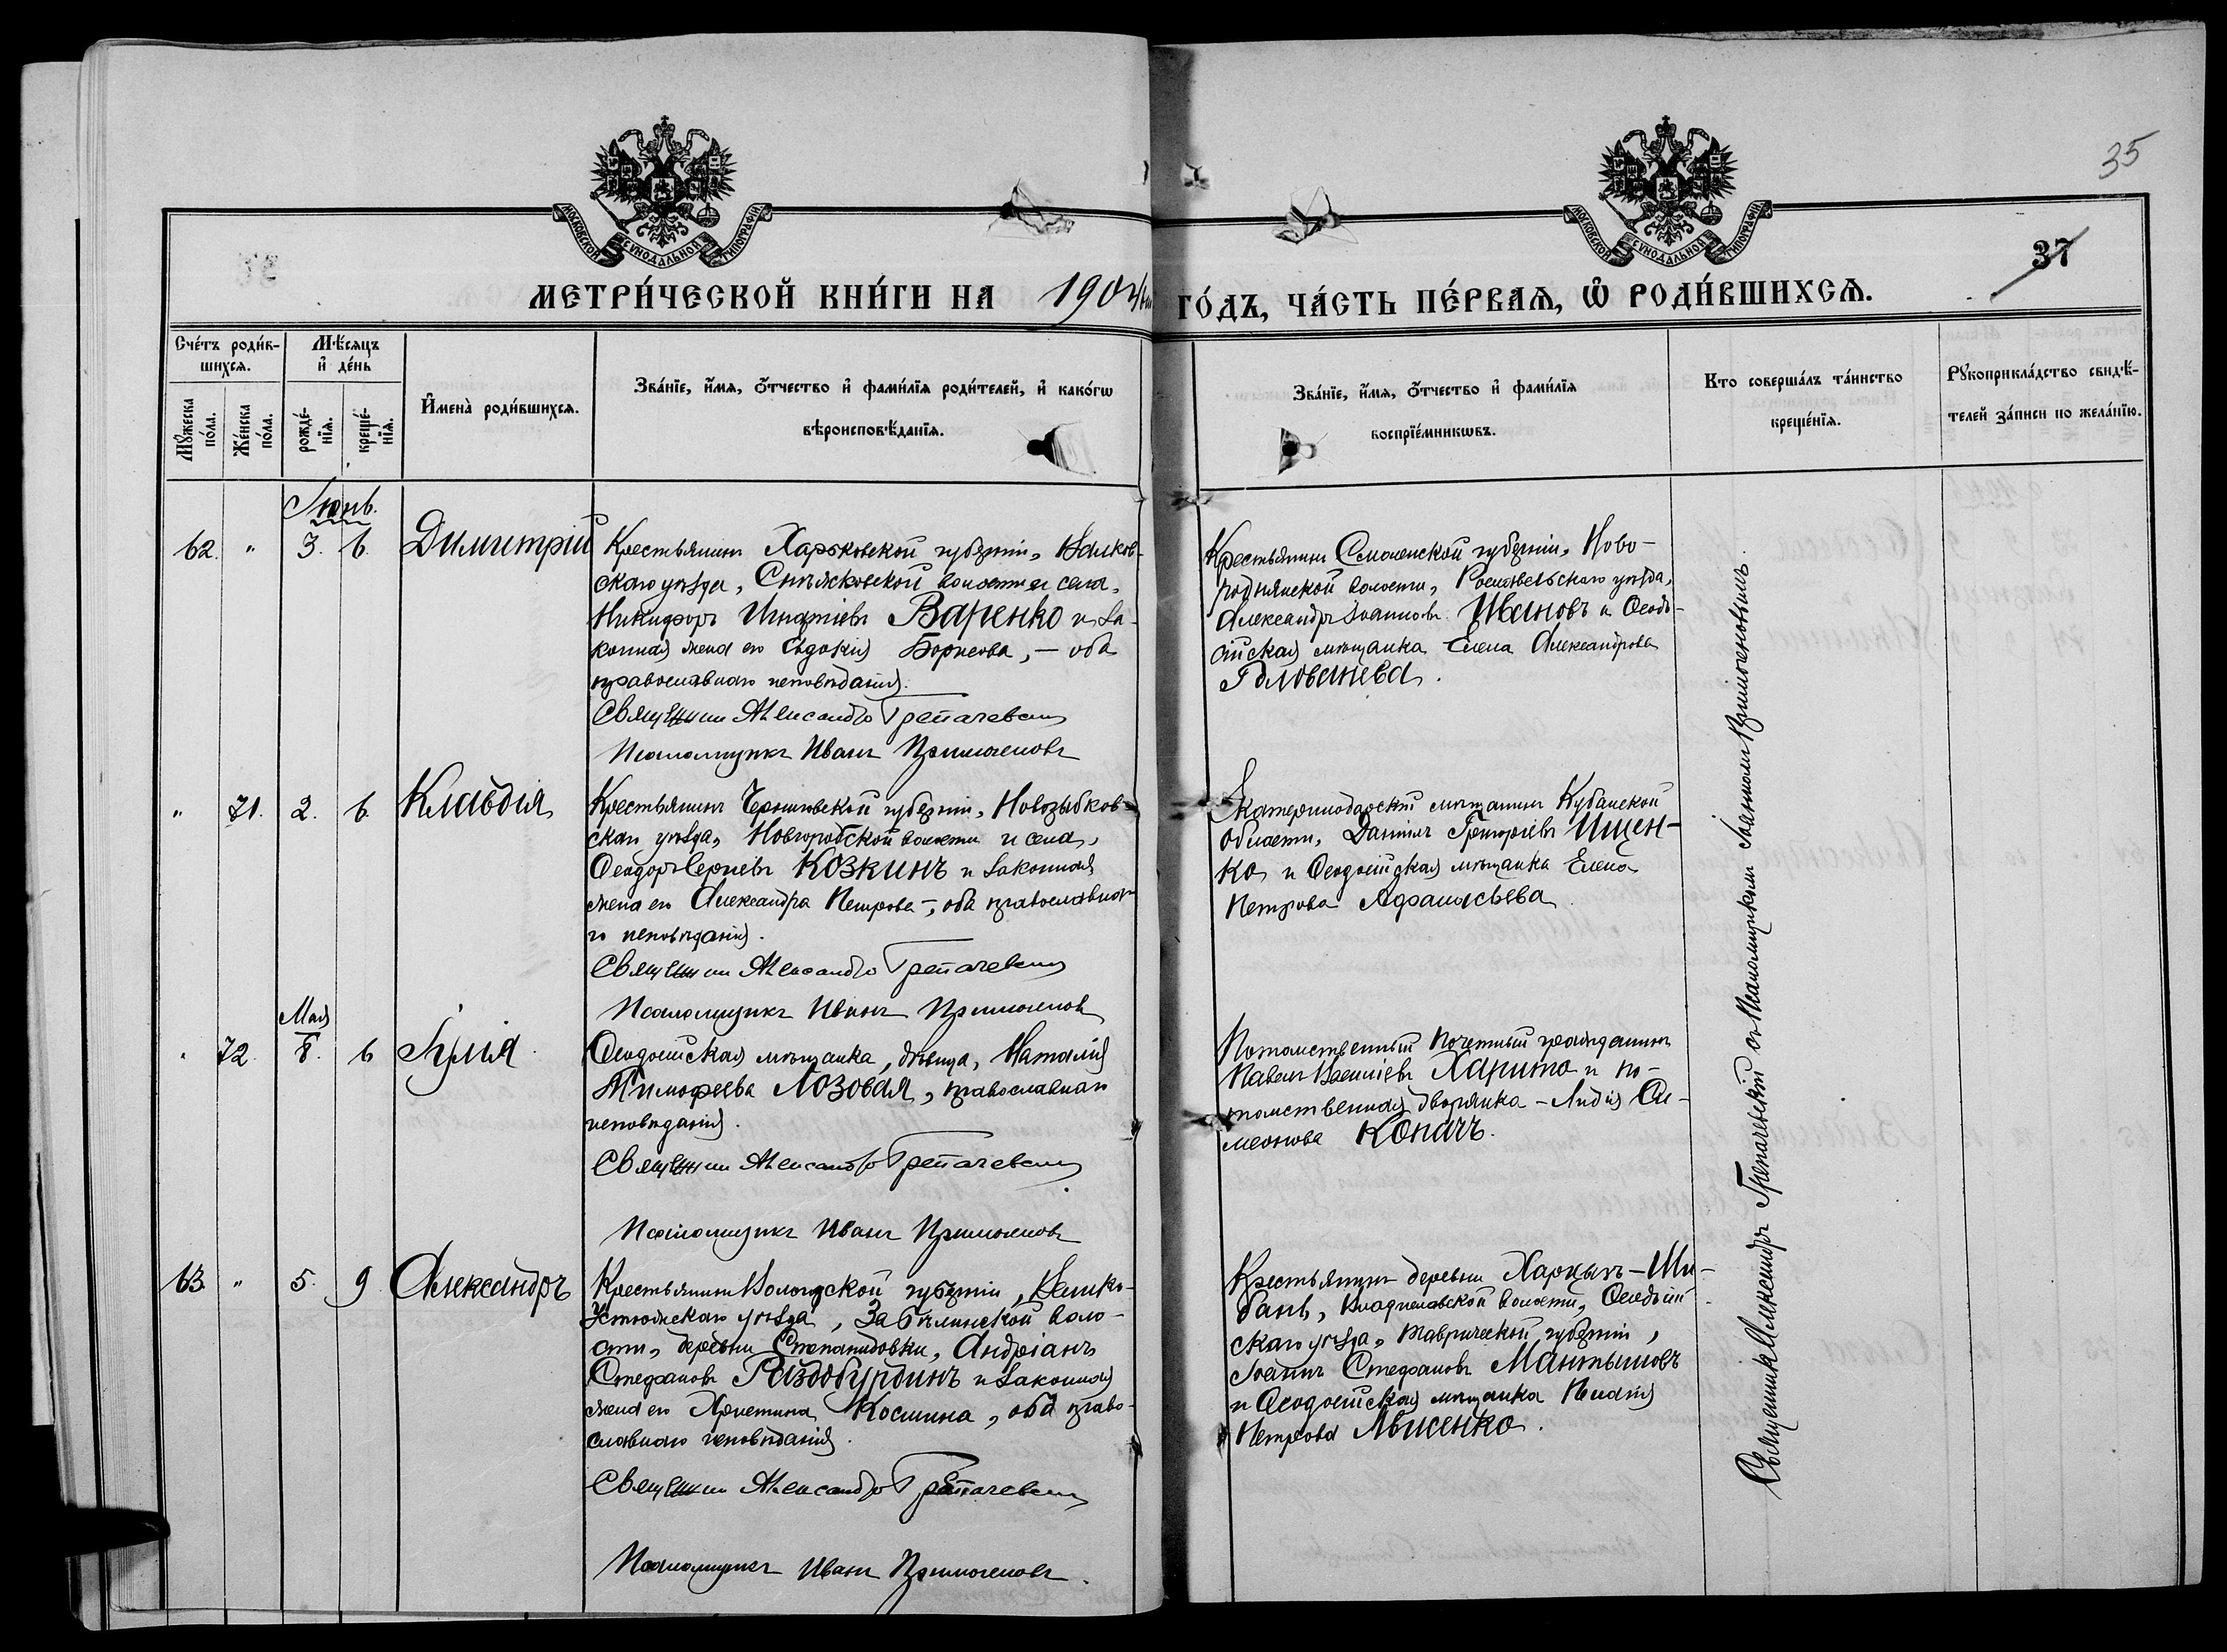 35
37
МОСКОВСКОЙ СѴНОДАЛЬНОЙ ТИПОГРАФІИ
МОСКОВСКОЙ СѴНОДАЛЬНОЙ ТИПОГРАФІИ
МЕТРИ́ЧЕСКОЙ КНИ́ГИ НА 1904 ГО́ДЪ, ЧА́СТЬ ПЕ́РВАЯ, Ѿ РОДИ́ВШИХСЯ.
Сче́тъ роди́в-
шихся.
Мꙋ́жеска по́ла.
Же́нска по́ла.
Мѣ́сяцъ
и҆ де́нь
рожде́-
нїя.
креще́-
нїя.
И҆мена̀ роди́вшихся.
Зва́нїе, и҆́мя, ѻ҆́тчество и҆ фами́лїя роди́телей, и҆ како́гѡ
вѣроисповѣ́данїя.
Зва́нїе, и҆́мя, ѻ҆́тчество и҆ фами́лїя
воспрїе́мникѡвъ.
Кто соверша́лъ та́инство
креще́нїя.
Рꙋкоприкла́дство свидѣ́-
телей за́писи по жела́нїю.
Іюнь.
62. " 3. 6. Димитрій
Крестьянинъ Харьковской губерніи, Валков-
скаго уѣзда, Снѣжковской волости и села,
Никифоръ Игнатіевъ Варенко и за-
конная жена его Евдокія Борисова, — оба
православнаго исповѣданія.
Священникъ Александръ Трепачевскій
Псаломщикъ Иванъ Примоченовъ
Крестьянинъ Смоленской губерніи, Ново-
роднянской волости, Рославльскаго уѣзда,
Александръ Іоанновъ Ивановъ и Ѳеодо-
сійская мѣщанка Елена Александрова
Голованева.
" 71. 2. 6. Клавдія
Крестьянинъ Черниговской губерніи, Новозыбков-
скаго уѣзда, Новгородской волости и села,
Ѳеодоръ Сергіевъ Козкинъ и законная
жена его Александра Петрова —, оба православна-
го исповѣданія.
Священникъ Александръ Трепачевскій
Псаломщикъ Иванъ Примоченовъ
Екатеринодарскій мѣщанинъ Кубанской
области, Даніилъ Григоріевъ Ищен-
ко и Ѳеодосійская мѣщанка Елена
Петрова Афанасьева
Мая
" 72. 8. 6 Іулія
Ѳеодосійская мѣщанка, дѣвица, Наталія
Тимофеева Лозовая, православнаго
исповѣданія.
Священникъ Александръ Трепачевскій
Псаломщикъ Иванъ Примоченовъ
Потомственный почетный гражданинъ
Павелъ Василіевъ Харито и по-
томственная дворянка — Лидія Си-
меонова Копачъ.
63. " 5. 9 Александръ
Крестьянинъ Вологодской губерніи, Велико-
Устюжскаго уѣзда, Забѣлинской воло-
сти, деревни Степанидовки, Андріанъ
Стефановъ Раздобурдинъ и законная
жена его Христина Космина, оба право-
славнаго исповѣданія.
Священникъ Александръ Трепачевскій
Псаломщикъ Иванъ Примоченовъ.
Крестьянинъ деревни Харджъ-Ши-
бань, Владиславской волости, Ѳеодосій-
скаго уѣзда, Таврической губерніи,
Іоаннъ Стефановъ Мантыловъ
и Ѳеодосійская мѣщанка Пелагія
Петрова Лысенко.
Священникъ Александръ Трепачевскій съ Псаломщикомъ Іоанномъ Примоченовымъ.